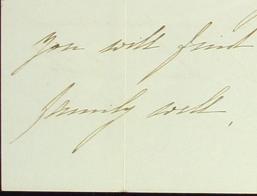 You will find
family well,